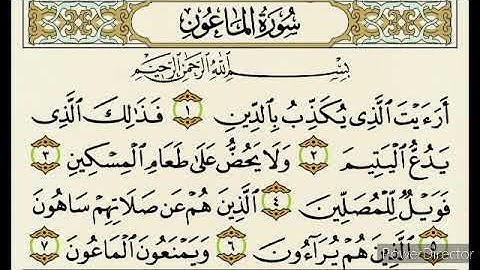 سُورَةُ الْمَاعُونِ
بِسْمِ اللَّهِ الرَّحْمَٰنِ الرَّحِيمِ
أَرَءَيْتَ ٱلَّذِى يُكَذِّبُ بِٱلدِّينِ ١ فَذَٰلِكَ ٱلَّذِى
يَدُعُّ ٱلْيَتِيمَ ٢ وَلَا يَحُضُّ عَلَىٰ طَعَامِ ٱلْمِسْكِينِ ٣
فَوَيْلٌ لِّلْمُصَلِّينَ ٤ ٱلَّذِينَ هُمْ عَن صَلَاتِهِمْ سَاهُونَ
٥ ٱلَّذِينَ هُمْ يُرَآءُونَ ٦ وَيَمْنَعُونَ ٱلْمَاعُونَ ٧
PowerDirector